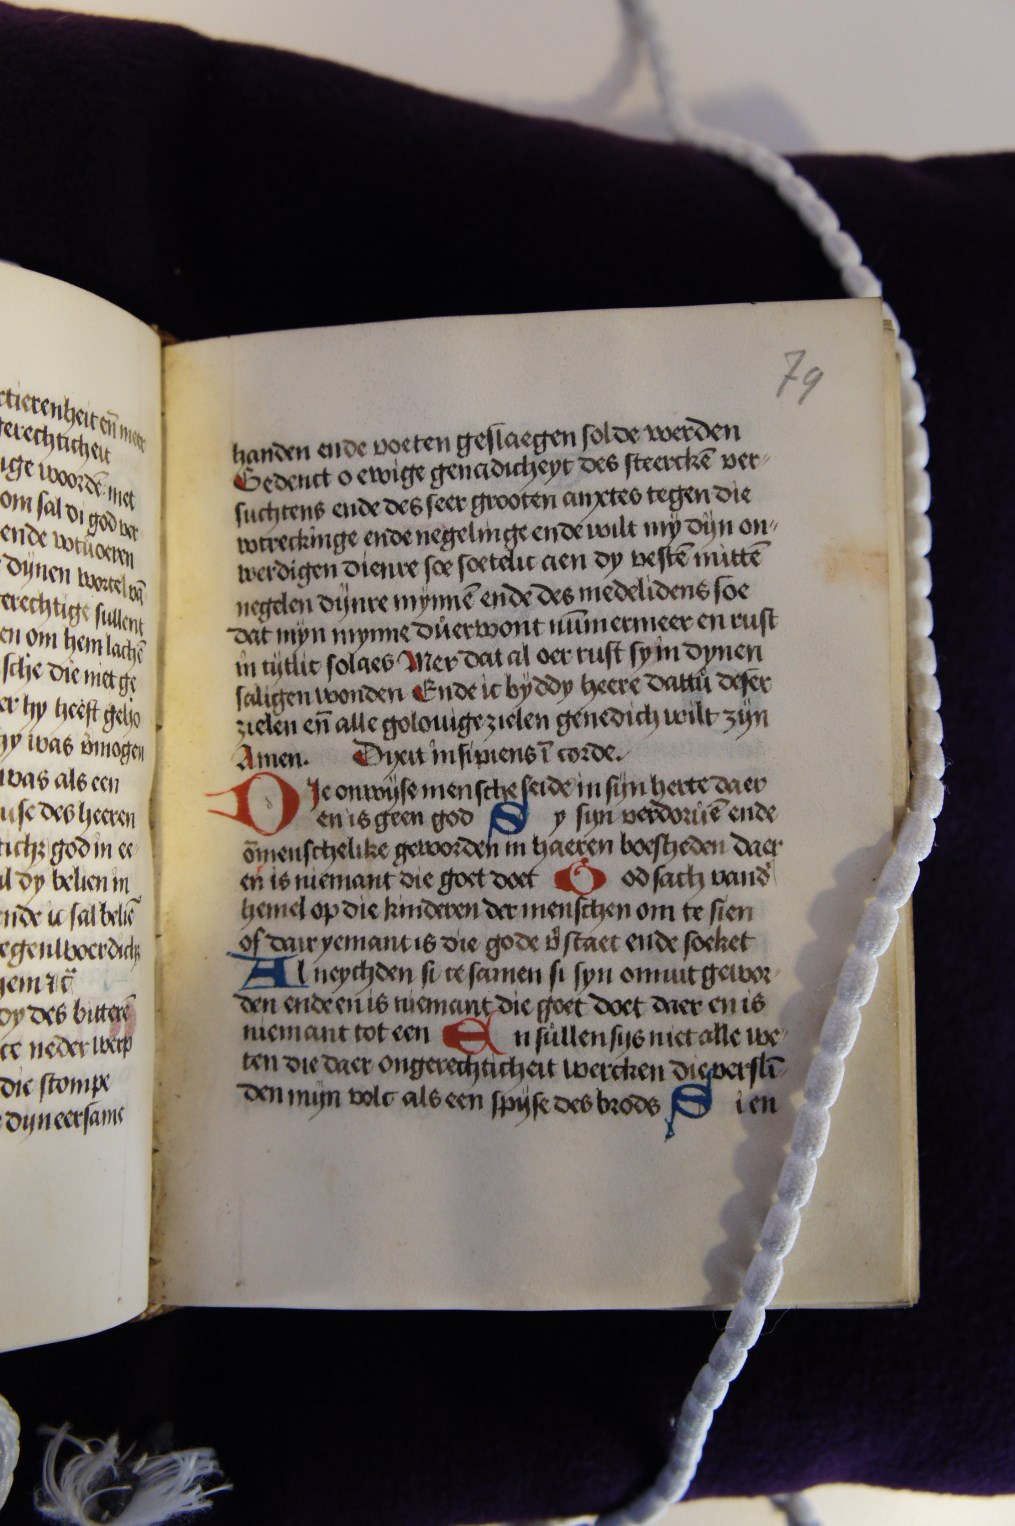 rtierenheit en̄ mede
gerechticheit
ige woordē met
om sal di god ver
ende wtůoeren
dynen wortel vā
erechtige sullent
en om hem lachē
sche die niet ge
er hy heeft geho
hy was v̄mogen
was als een
use des heeren
god in ee
l dy belien in
nde ic sal beliē
egenwoerdich
dy des bitterē
neder werp
die stompe
dyn eersāme
79
handen ende voeten geslaegen solde werden
Gedenct o ewige genadicheyt des steerckē ver-
suchtens ende des seer grooten anxtes tegen die
wtreckinge ende negelinge ende wilt mÿ dÿn on-
werdigen dienre soe soetelic aen dy vestē mittē
negelen dÿnre mynnē ende des medelidens soe
dat mÿn mynne dů̈erwont nūmermeer en rust
in tÿtlic solaes Mer dat al oer rust sy in dynen
saligen wonden Ende ic byddy heere dattů deser
zielen en̄ alle golouige zielen genedich wilt zÿn
Amen. Dixit insipiens ī corde.
DIe onwÿse mensche seide in sÿn herte daer
en is geen god Sy sÿn verdorůē ende
ōmenschelike geworden in haeren boesheden daer
en is niemant die goet doet God sach vandē
hemel op die kinderen der menschen om te sien
of dair yemant is die gode v̄staet ende soeket
Al neychden si te samen si syn onnut gewor-
den ende en is niemant die goet doet daer en is
niemant tot een En sůllen sijs niet alle we-
ten die daer ongerechticheit wercken die verslī-
den mÿn volc als een spÿse des brods Si en